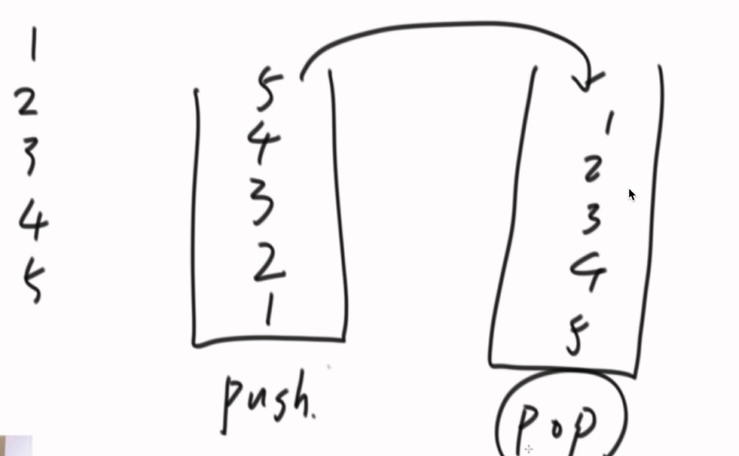 1
2
3
4
5
5
4
3
2
1
push.
1
2
3
4
5
pop